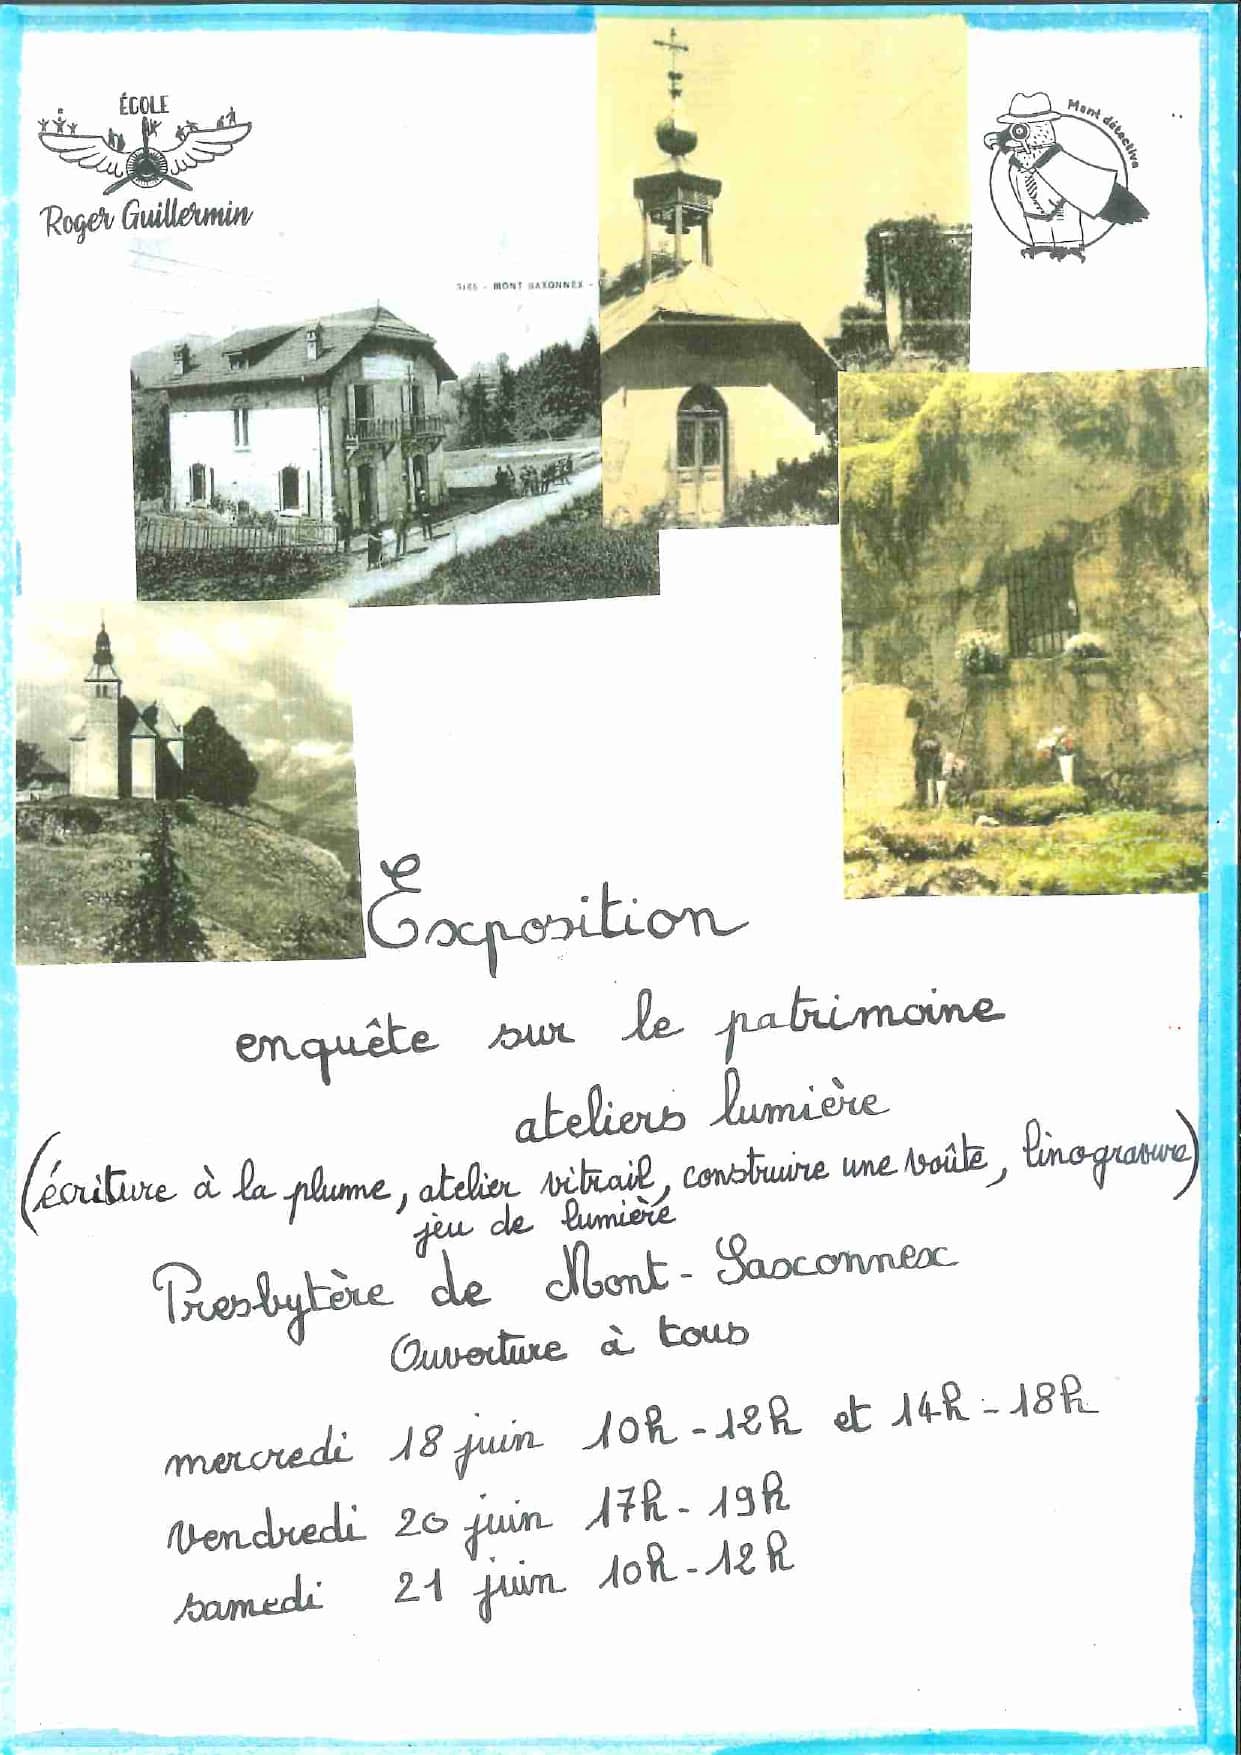 ÉCOLE
Roger Guillermin
Mont détective
3165 - MONT SAXONNEX -
Exposition
enquête sur le patrimoine
ateliers lumière
(écriture à la plume, atelier vitrail, construire une voûte, linogravure)
jeu de lumière
Presbytère de Mont-Saxonnex
Ouverture à tous
mercredi 18 juin 10h-12h et 14h-18h
vendredi 20 juin 17h-19h
samedi 21 juin 10h-12h